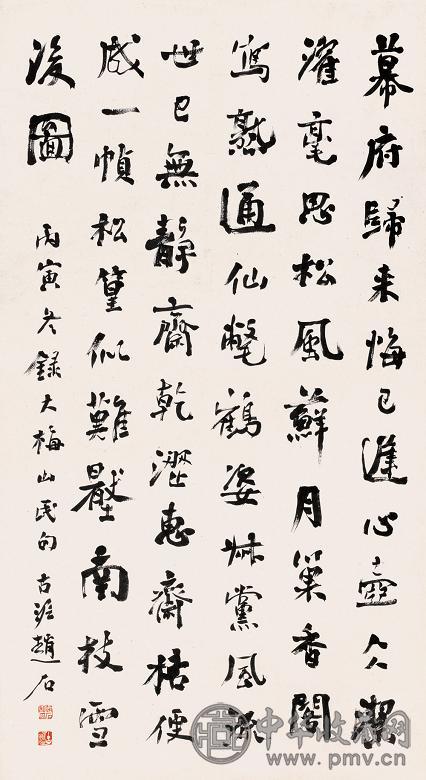 幕府歸来悔已遲心壺仌潔
濯毫思松風蘚月巢香閣
寫熟通仙氅鶴姿黨風流
世已無靜齋乾澀惠齋枯便
成一幀松篁似難壓南枝雪
後圖
丙寅冬錄大梅山民句 古泥趙石
中华收藏网
www.pmv.cn